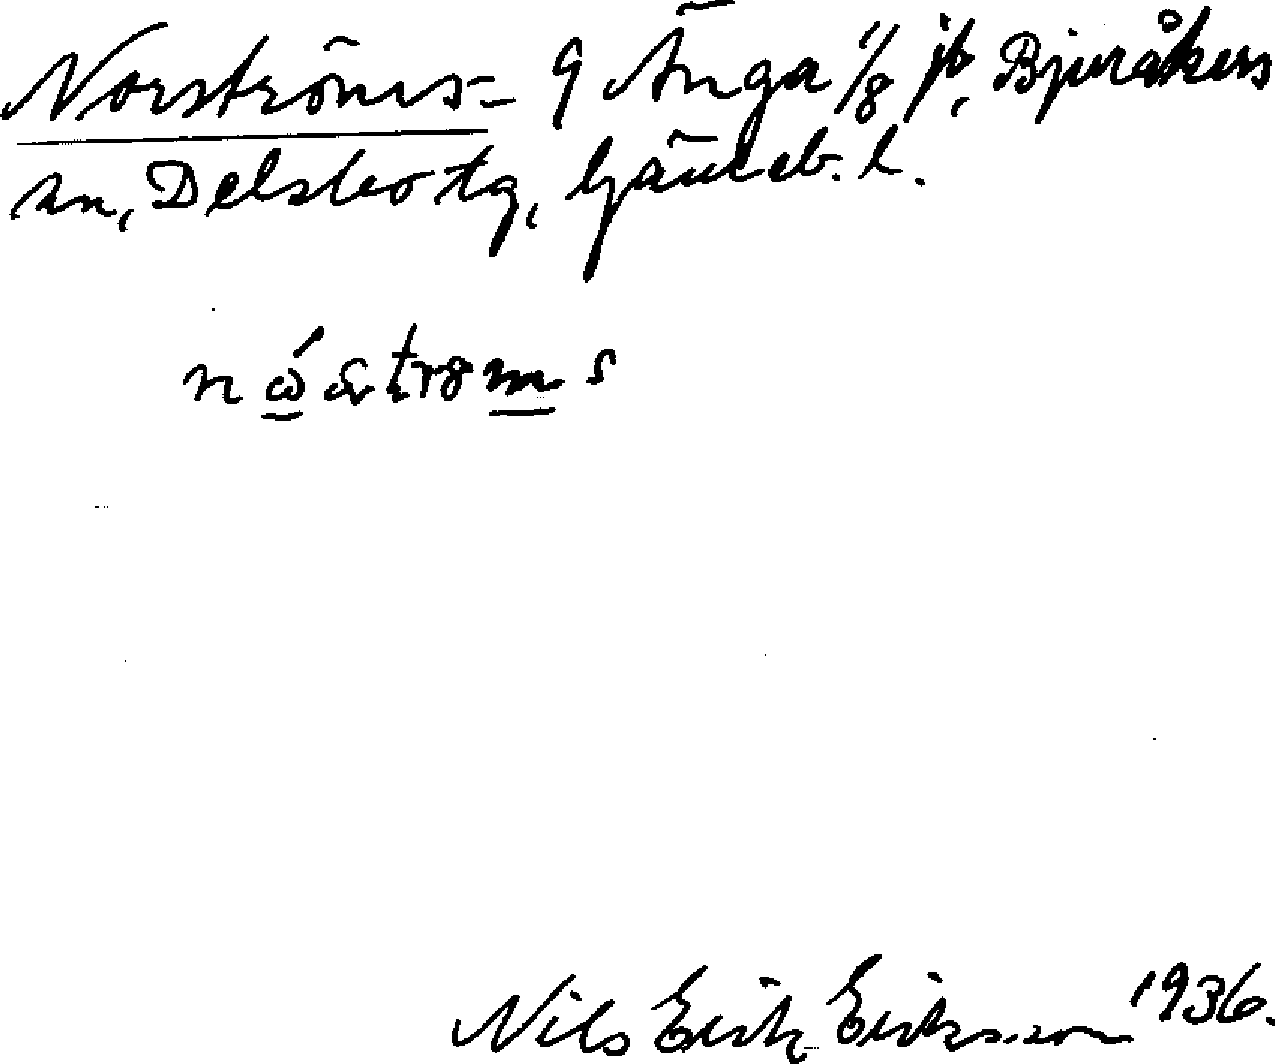 Norströms- 9 Änga 1/8 jb, Bjuråkers
sn, Delsbo tg, Gävleb. l.
Nils Erik Eriksson 1936.